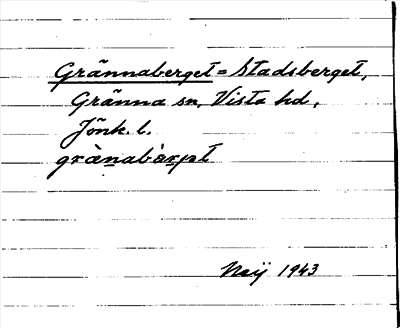 Grännaberget = Stadsberget,
Gränna sn, Vista hd,
Jönk. l.
grànabàrpt
Neij 1943